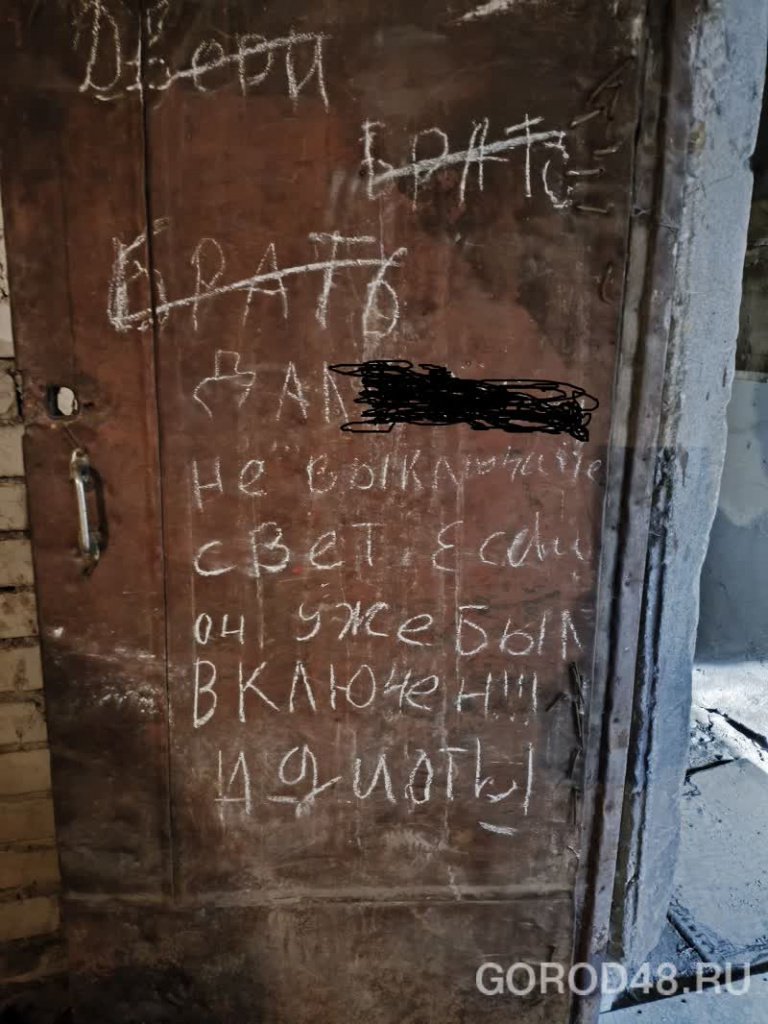 Двери
БРАТЬ
БРАТЬ
не выключайте
свет. Если
он уже Был
ВКЛЮЧеН!!!
идиоты
GOROD48.RU